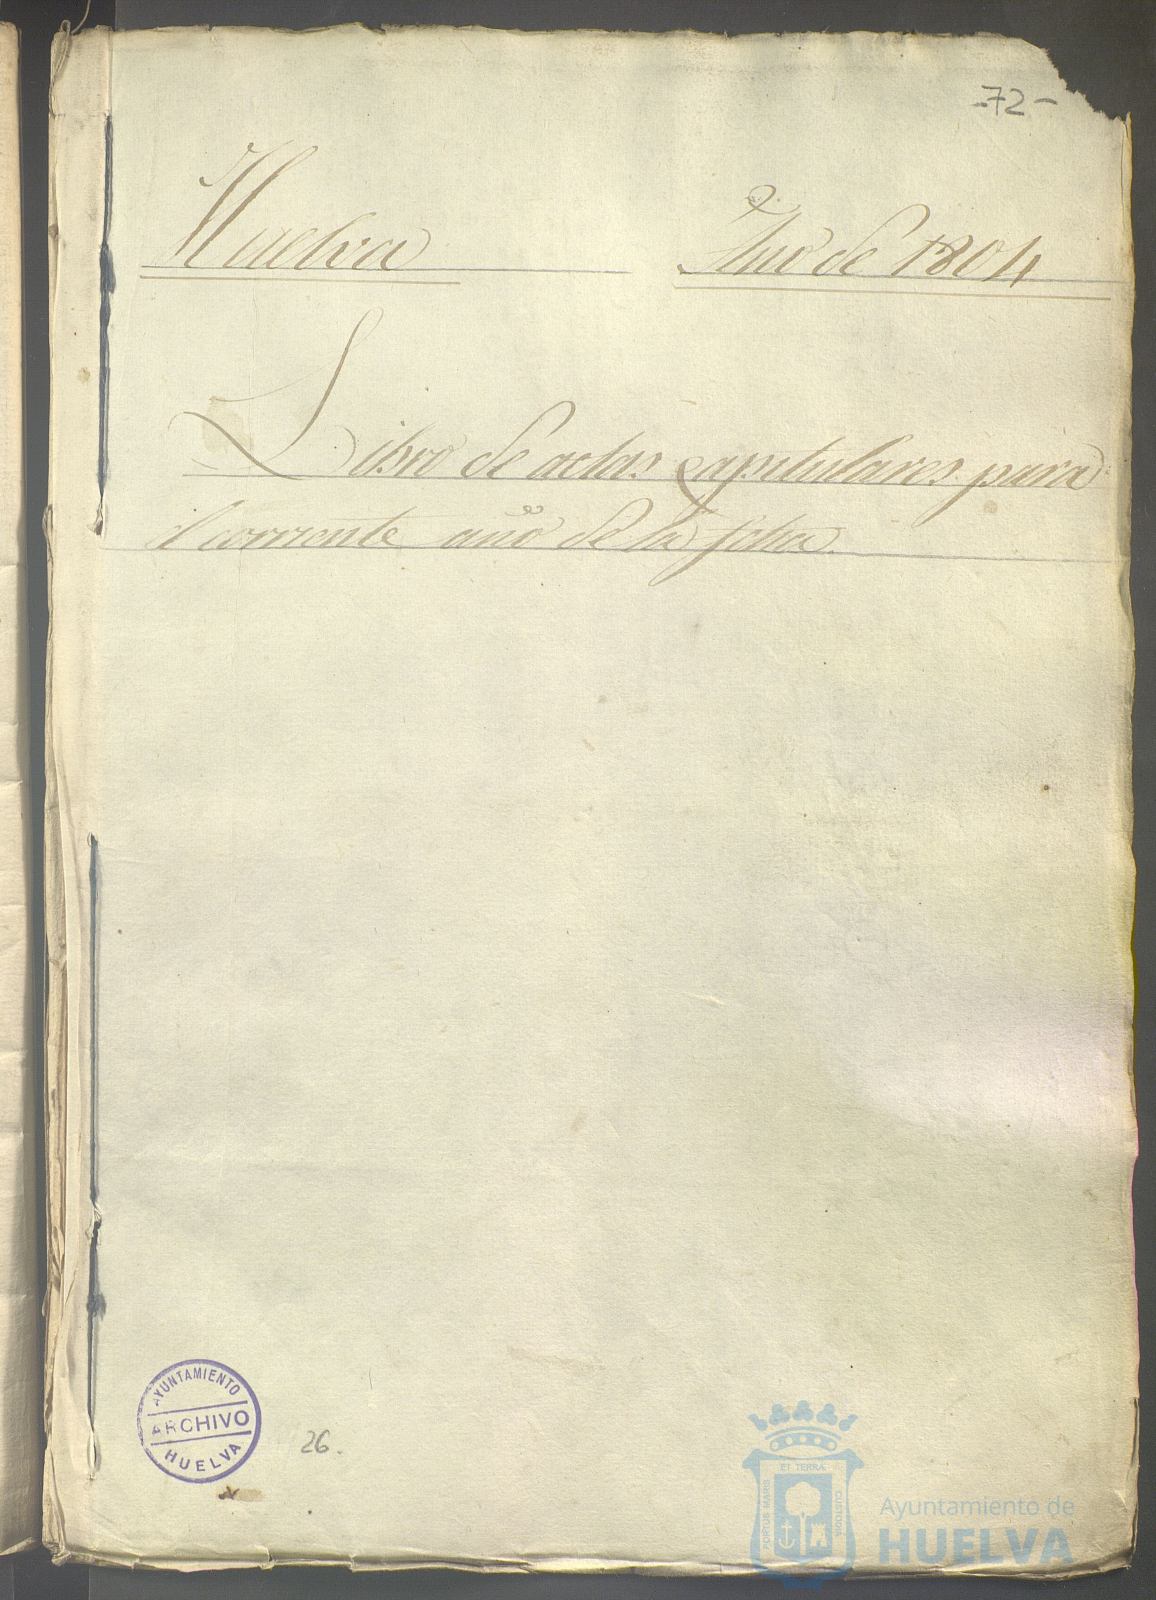 -72-
Huelva Año de 1804
Libro de actas Capitulares para
el corriente año de la fcha.
AYUNTAMIENTO
ARCHIVO
HUELVA
26.
PORTUS MARIS
ET TERRÆ
CUSTODIA
Ayuntamiento de
HUELVA